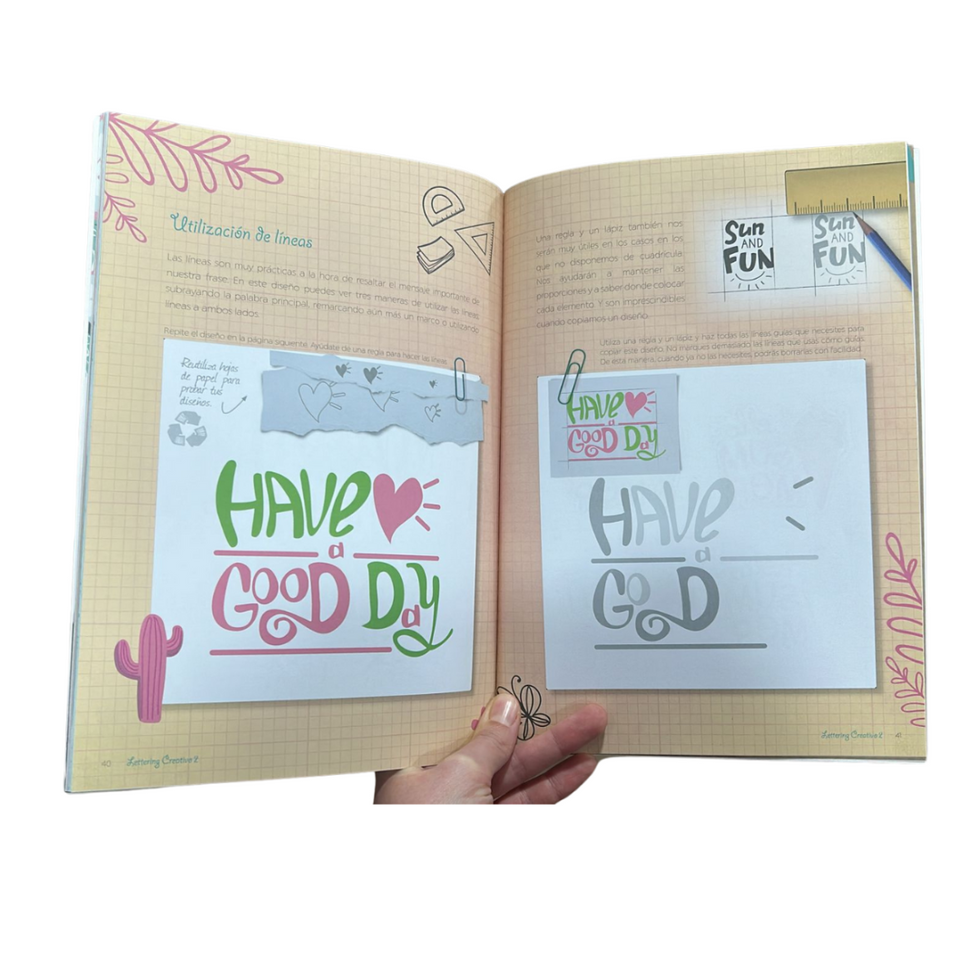 Utilización de líneas
Las líneas son muy prácticas a la hora de resaltar el mensaje importante de
nuestra frase. En este diseño puedes ver tres maneras de utilizar las líneas:
subrayando la palabra principal, remarcando aún más un marco o utilizando
líneas a ambos lados.
Repite el diseño en la página siguiente. Ayúdate de una regla para hacer las líneas.
Reutiliza hojas
de papel para
probar tus
diseños.
HAVE
a
GOOD Day
40 Lettering Creativo 2
Una regla y un lápiz también nos
serán muy útiles en los casos en los
que no disponemos de cuadrícula.
Nos ayudarán a mantener las
proporciones y a saber donde colocar
cada elemento. Y son imprescindibles
cuando copiamos un diseño.
Sun
AND
FUN
Sun
AND
FUN
Utiliza una regla y un lápiz y haz todas las líneas guías que necesites para
copiar este diseño. No marques demasiado las líneas que usas cómo guías.
De esta manera, cuando ya no las necesites, podrás borrarlas con facilidad.
HAVE
a
GOOD Day
HAVE
a
GO D
Lettering Creativo 2 41